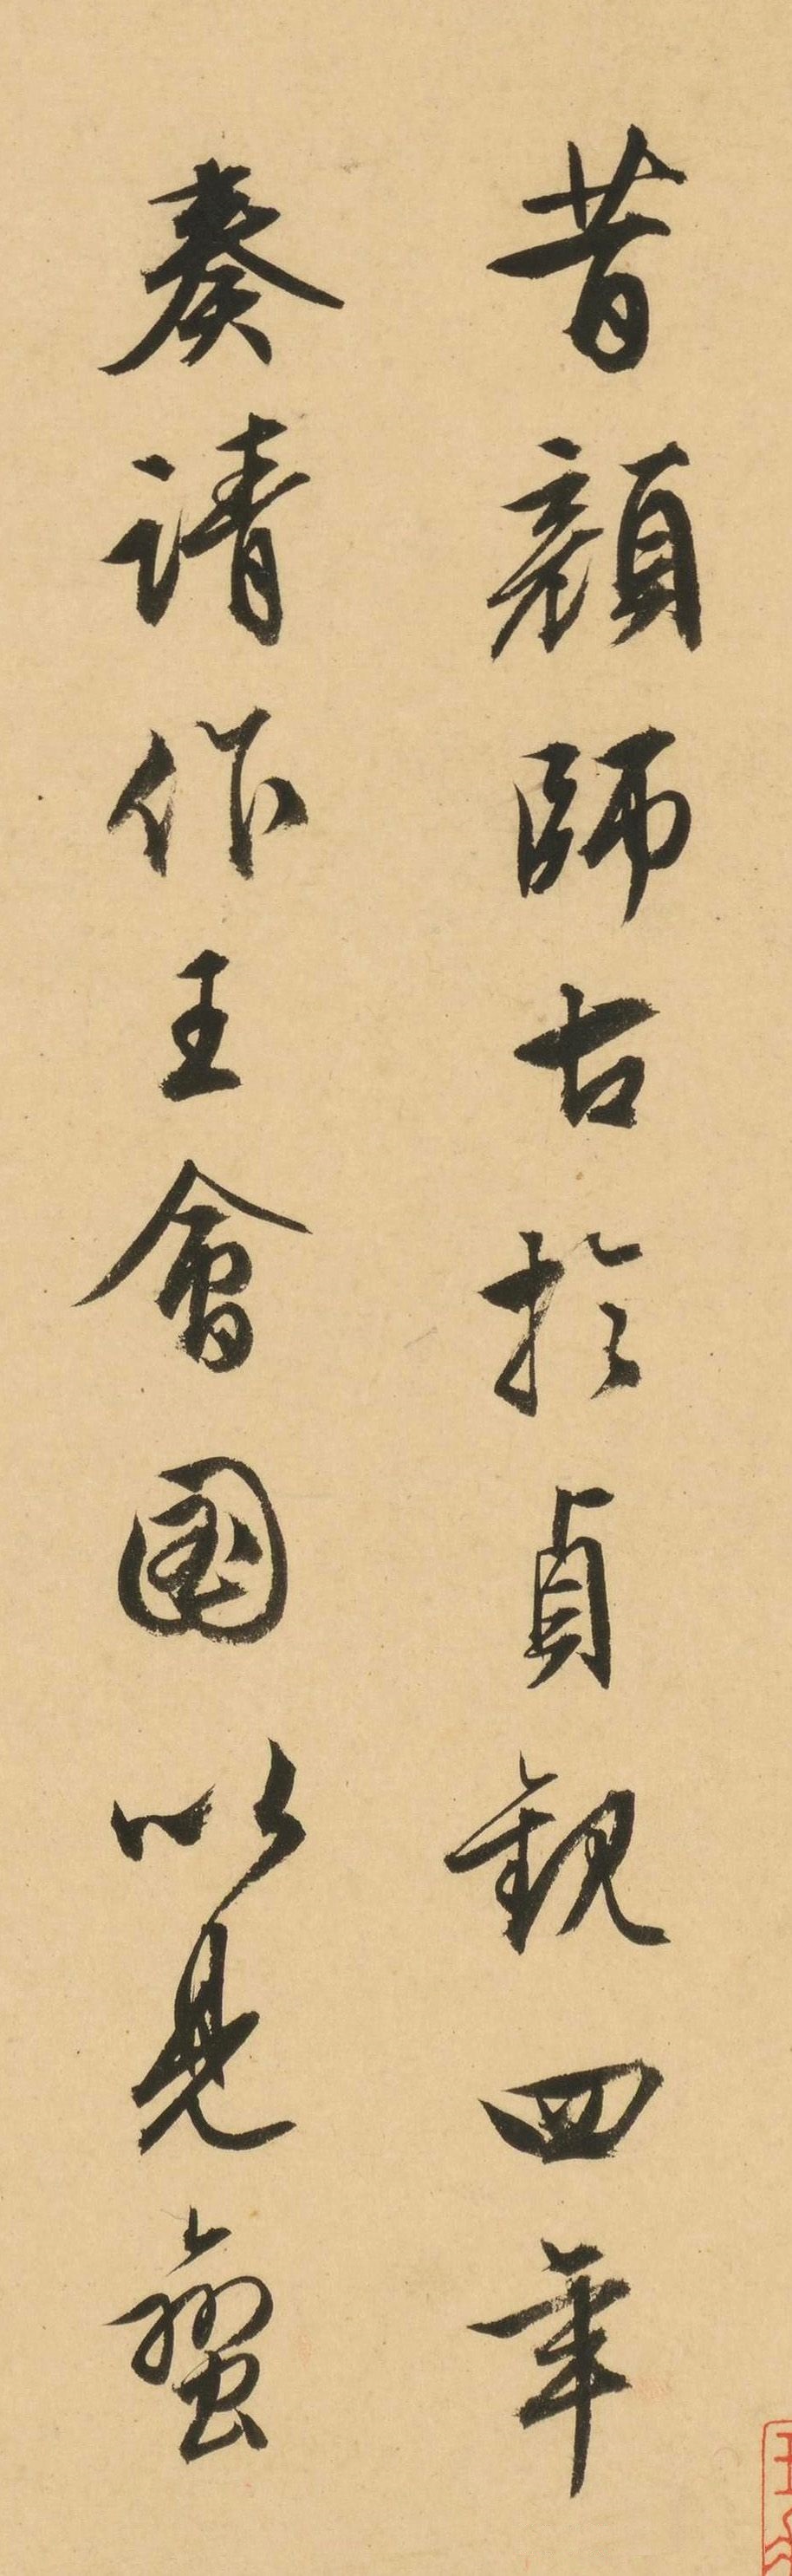 昔顔師古於貞観四年
奏請作王會圖以見蠻